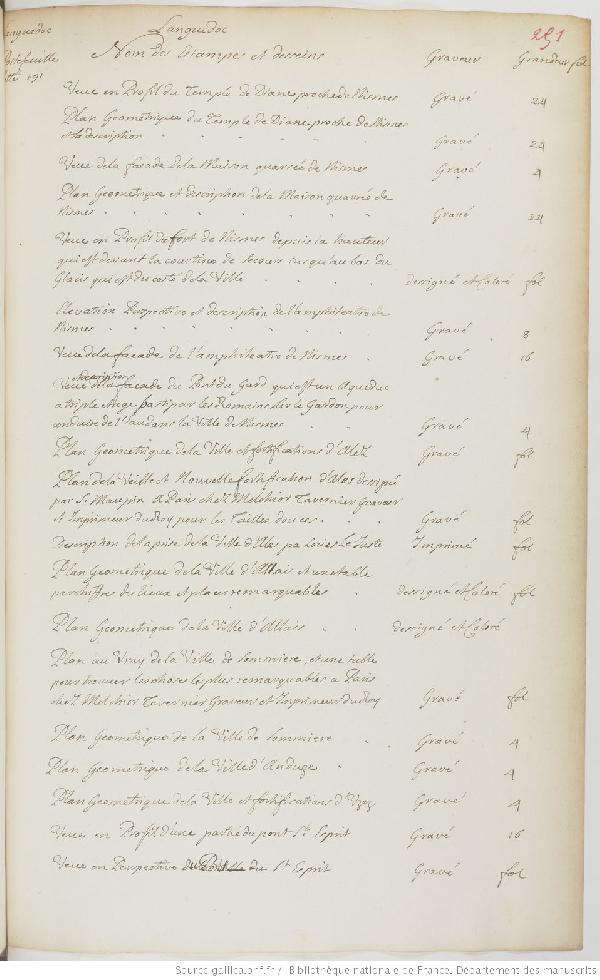 Languedoc
Languedoc
251
Portefeuille
Nom des Stampes et desseins Graveur Grandeur fol
Veüe en Profil du Temple de Diane proche de Nismes Gravé 24
Plan Geometrique du Temple de Diane proche de Nismes
et la description Gravé 24
Veüe de la facade de la Maison quarrée de Nismes Gravé 4
Plan Geometrique et description de la Maison quarrée de
Nismes Gravé 24
Veüe en Profil du fort de Nismes depuis la hauteur
qui est devant la courtine de secours jusqu'au bas du
Glacis qui est du costé de la Ville dessigné et Coloré fol
Elevation Perspective et description de l'amphiteatre de
Nismes Gravé 8
Veüe de la facade de l'amphiteatre de Nismes Gravé 16
description
Veüe de la facade du Pont du Gard qui est un Aqueduc
a triple etage basti par les Romains sur le Gardon pour
conduire de l'eau dans la Ville de Nismes Gravé 4
Plan Geometrique de la Ville et fortifications d'Alez Gravé fol
Plan de la Ville et Nouvelle fortification d'Ales dessigné
par S. Maupin A Paris chez Melchior Tavernier Graveur
et Imprimeur du Roy pour les Tailles douces Gravé fol
Description de la prise de la Ville d'Alles par Louis Le Juste Imprimé fol
Plan Geometrique de la Ville d'Allais et une table
par chiffres des lieux et places remarquables dessigné et Coloré fol
Plan Geometrique de la Ville d'Allais dessigné et Coloré
Plan au Vray de la Ville de Sommiere, et une table
pour trouver les choses les plus remarquables a Paris
chez Melchior Tavernier Graveur et Imprimeur du Roy Gravé fol
Plan Geometrique de la Ville de Sommiere Gravé 4
Plan Geometrique de la Ville d'Anduze Gravé 4
Plan Geometrique de la Ville et fortifications d'Uzez Gravé 4
Veüe en Profil d'une partie du pont St Esprit Gravé 16
Veüe en Perspective du St Esprit Gravé fol
Source gallica.bnf.fr / Bibliothèque nationale de France. Département des manuscrits